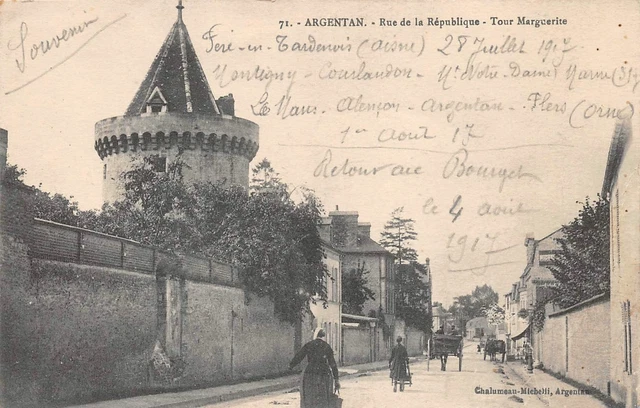 71. - ARGENTAN. - Rue de la République - Tour Marguerite
Souvenir
Fère-en-Tardenois (Aisne) 28 Juillet 1917
Montigny - Courlandon - Notre-Dame Marne (51)
Le Mans - Alençon - Argentan - Flers (Orne)
1er Août 17
Retour au Bourget
le 4 août
1917
Chalumeau-Michelli, Argentan